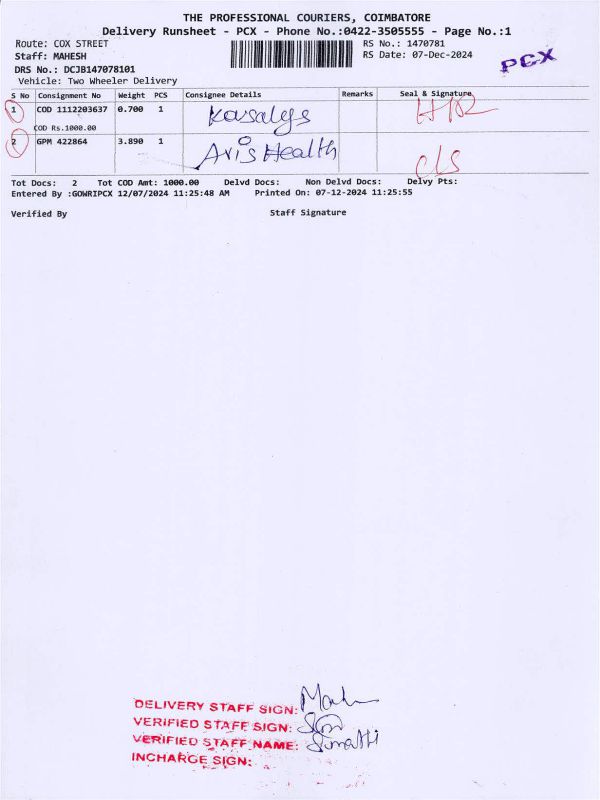 THE PROFESSIONAL COURIERS, COIMBATORE
Delivery Runsheet - PCX - Phone No.:0422-3505555 - Page No.:1
Route: COX STREET RS No.: 1470781
Staff: MAHESH RS Date: 07-Dec-2024
PCX
DRS No.: DCJB147078101
Vehicle: Two Wheeler Delivery
S No Consignment No Weight PCS Consignee Details Remarks Seal & Signature
1 COD 1112203637 0.700 1 Kasalys
COD Rs.1000.00
2 GPM 422864 3.890 1 Aris Health
Tot Docs: 2 Tot COD Amt: 1000.00 Delvd Docs: Non Delvd Docs: Delvy Pts:
Entered By :GOWRIPCX 12/07/2024 11:25:48 AM Printed On: 07-12-2024 11:25:55
Verified By Staff Signature
DELIVERY STAFF SIGN:
VERIFIED STAFF SIGN:
VERIFIED STAFF NAME:
INCHARGE SIGN: